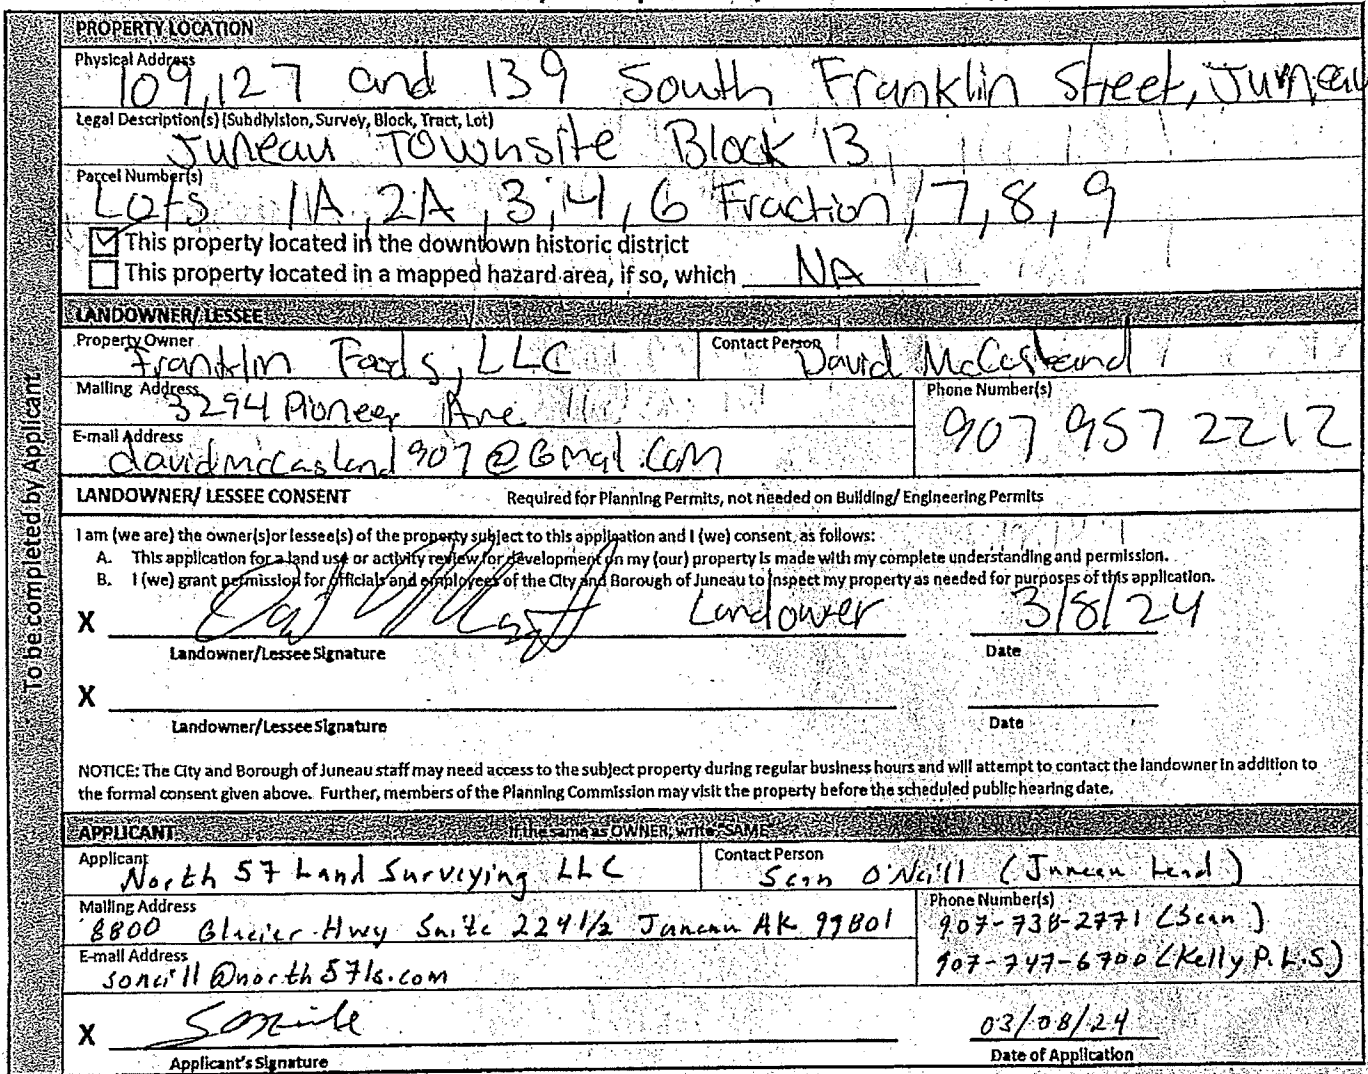 PROPERTY LOCATION
Physical Address
109, 127 and 139 South Franklin Street, Juneau
Legal Description(s) (Subdivision, Survey, Block, Tract, Lot)
Juneau Townsite Block 13
Parcel Number(s)
Lots 1A, 2A, 3, 4, 6 Fraction, 7, 8, 9
This property located in the downtown historic district
This property located in a mapped hazard area, if so, which NA
LANDOWNER/ LESSEE
Property Owner Contact Person
Franklin Foods, LLC David McCasland
Mailing Address Phone Number(s)
3294 Pioneer Ave
907 957 2212
E-mail Address
davidmcCasland907@Gmail.com
LANDOWNER/ LESSEE CONSENT Required for Planning Permits, not needed on Building/ Engineering Permits
I am (we are) the owner(s)or lessee(s) of the property subject to this application and I (we) consent, as follows:
A. This application for a land use or activity review for development on my (our) property is made with my complete understanding and permission.
B. I (we) grant permission for officials and employees of the City and Borough of Juneau to inspect my property as needed for purposes of this application.
X Landower 3/8/24
Landowner/Lessee Signature Date
X
Landowner/Lessee Signature Date
NOTICE: The City and Borough of Juneau staff may need access to the subject property during regular business hours and will attempt to contact the landowner in addition to
the formal consent given above. Further, members of the Planning Commission may visit the property before the scheduled public hearing date.
APPLICANT If the same as OWNER, write "SAME"
Applicant Contact Person
North 57 Land Surveying LLC Sean O'Neill (Juneau Lead)
Mailing Address Phone Number(s)
8800 Glacier Hwy Suite 224 1/2 Juneau AK 99801 907-738-2771 (Sean)
E-mail Address
soneill@north57ls.com 907-747-6700 (Kelly P.L.S)
X 03/08/24
Applicant's Signature Date of Application
To be completed by Applicant